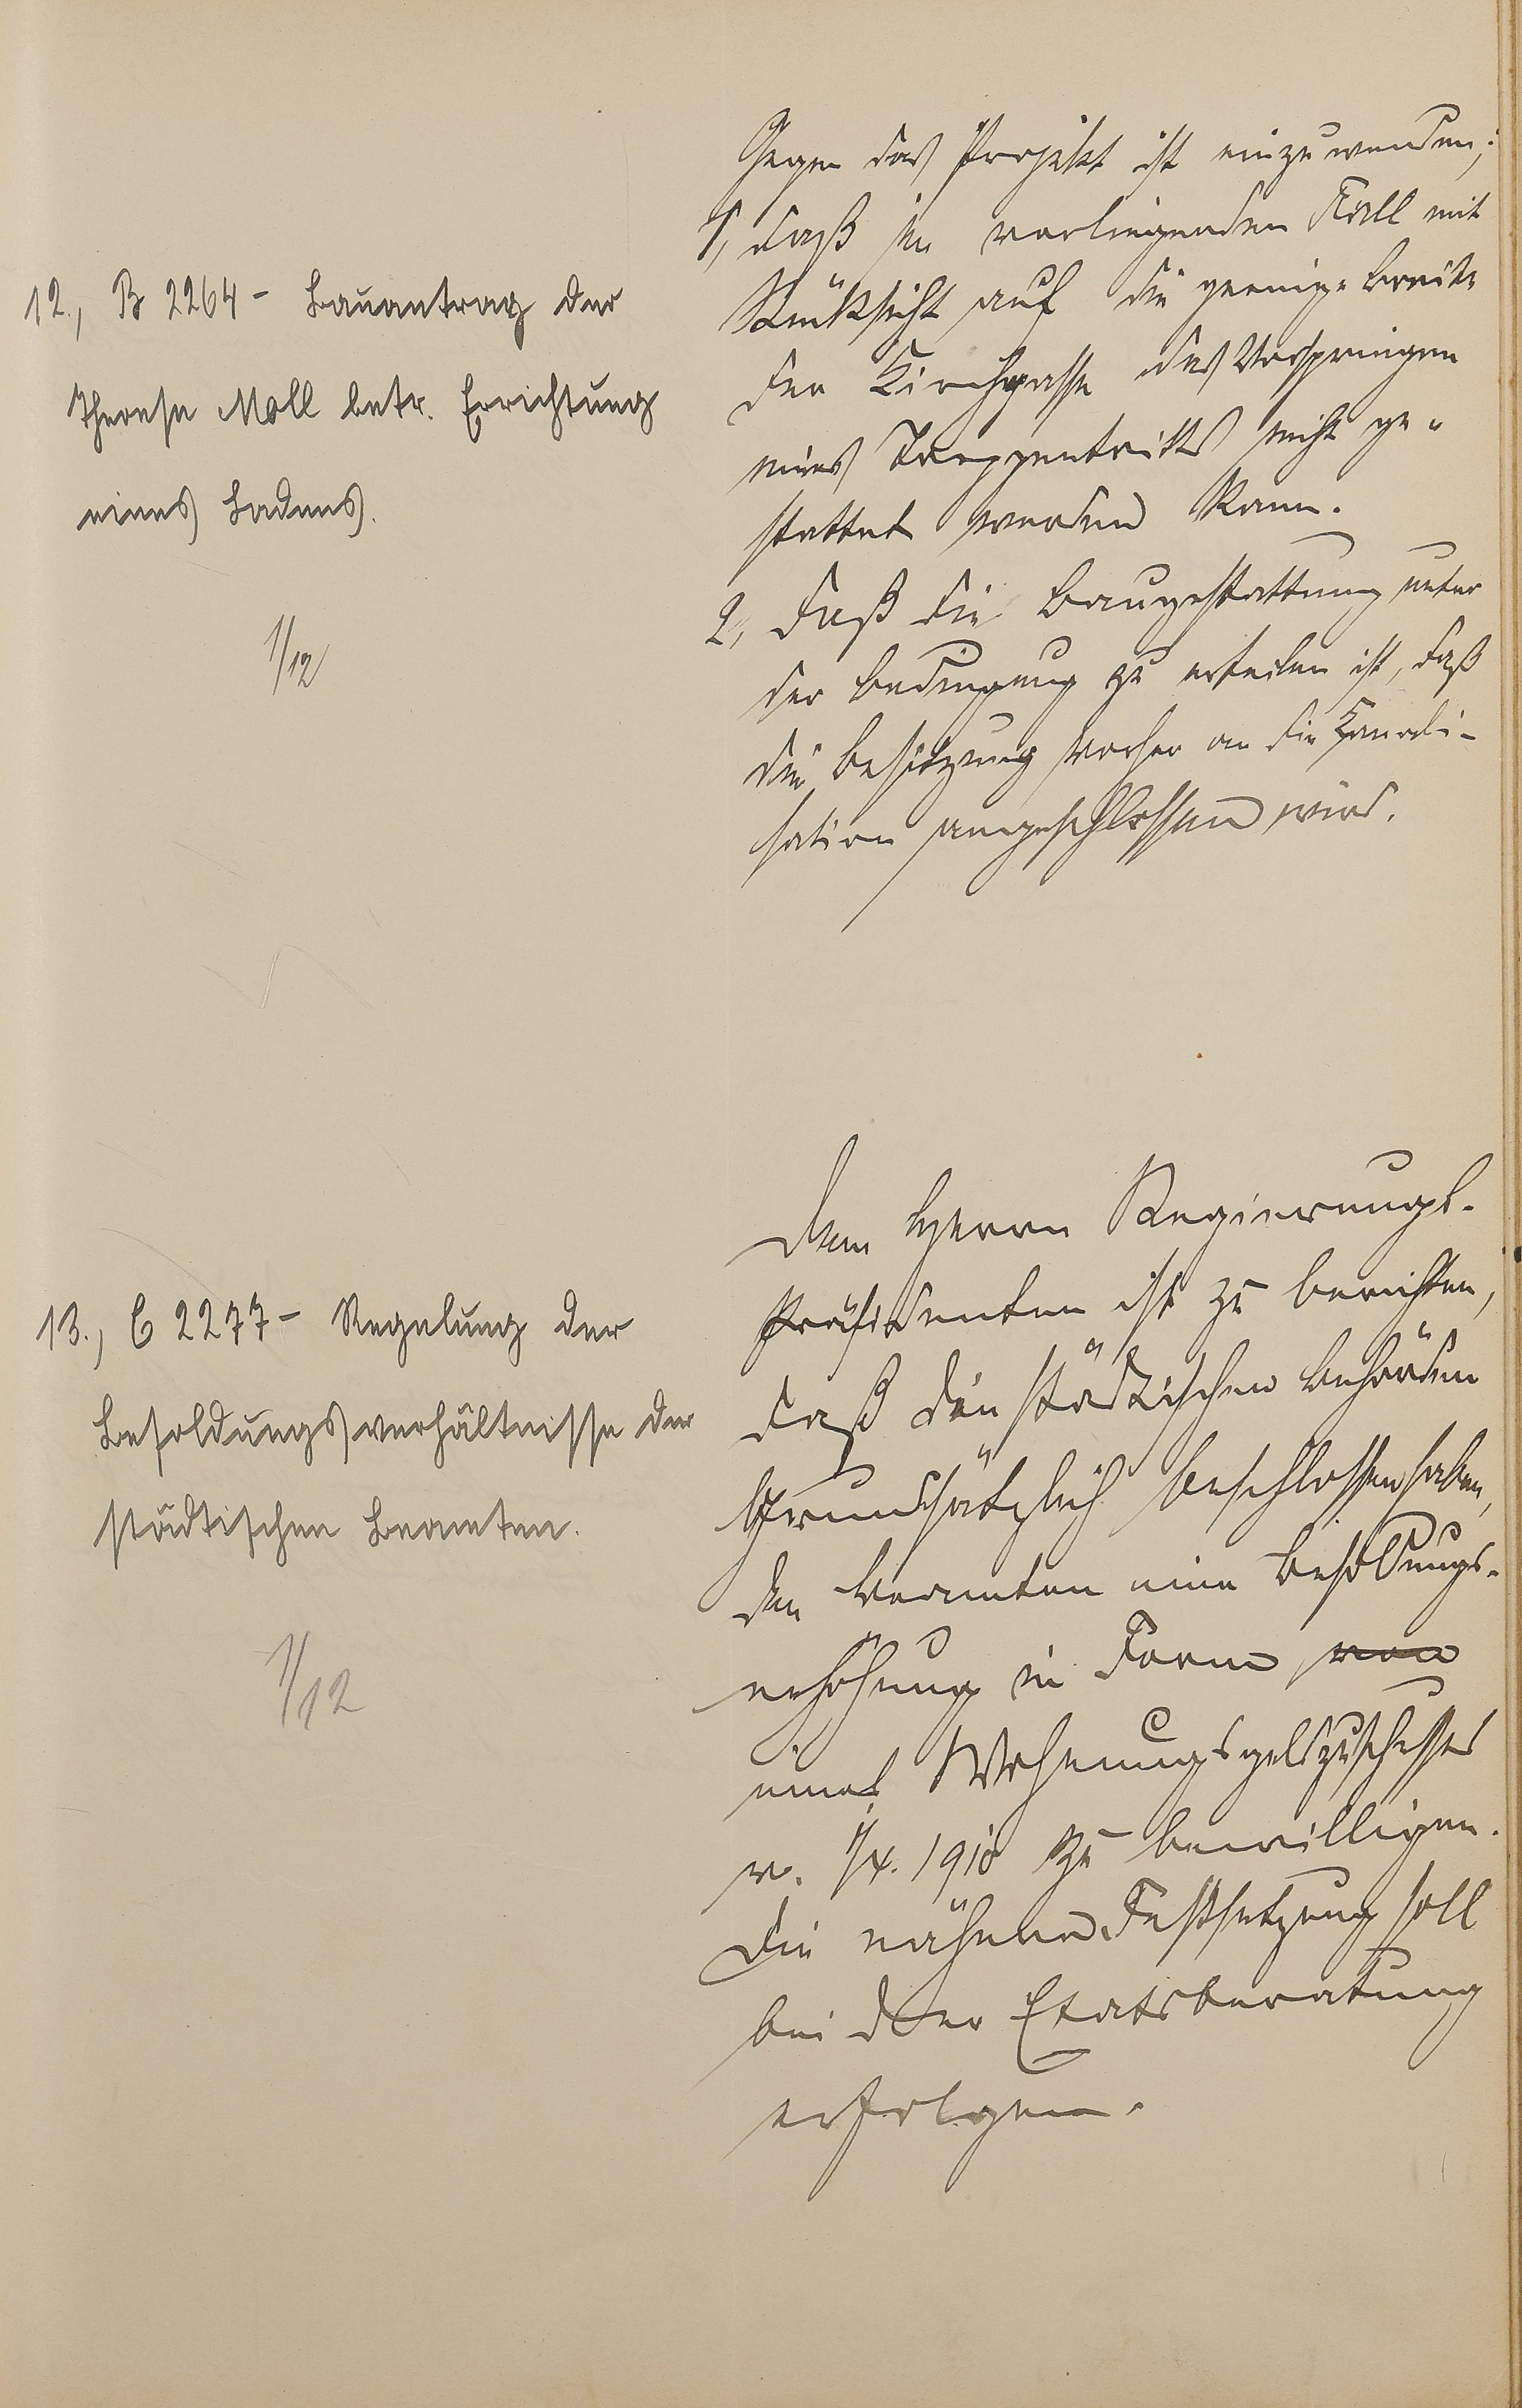 12., B 2264 - Bauantrag der
Therese Moll betr. Errichtung
eines Ladens.
1/12
Gegen das Projekt ist einzuwenden;
1, daß im vorliegenden Fall mit
Rücksicht auf die geringe Breite
der Kirchgasse das Vorspringen
eines Treppentritts nicht ge-
stattet werden kann.
2, daß die Baugestattung unter
der Bedingung zu erteilen ist, daß
die Besitzung vorher an die Kanali-
sation angeschlossen wird.
13., C 2277 - Regelung der
Besoldungsverhältnisse der
städtischen Beamten.
1/12
Dem Herrn Regierungs-
Präsidenten ist zu berichten,
daß die städtischen Behörden
grundsätzlich beschlossen haben,
den Beamten eine Besoldungs-
erhöhung in Form von
eines Wohnungsgeldzuschusses
v. 1/4. 1910 zu bewilligen.
Die nähere Festsetzung soll
bei der Etatsberatung
erfolgen.